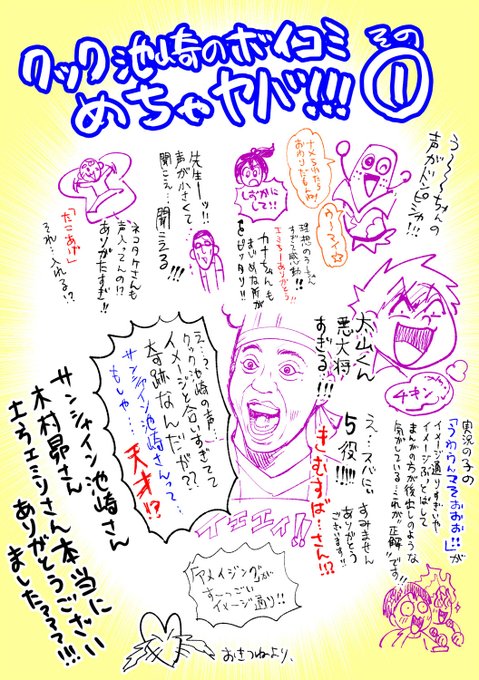 クック池崎のボイコミ
めちゃヤバ!!!
その
①
う〜〜ちゃんの
声がドンピシャ!!!
ナメられたら
おわりだもんね!
う〜マン☆
しずかに
して!!
理想のう〜ちゃん
すぎて感動!!
エミちーありがとう!!
カナちゃんも
まじめな所が
ピッタリ!!
先生ーッ!!
声が小さくて
聞こえ…聞こえる!!!
ネコタケさんも
声入ってんの!?
ありがたすぎ!!
「たこあげ」
それ…入れる!?
大山くん
悪大将
すぎる!!!
チキン
え…スバにぃ
5役!!!!
すみません
ありがとう
ございます!!
きむすば…さん!!?
実況の子の
「うわうんマそおおお!!」が
イメージ通りすぎいや
イメージぶっとばして
まんがの方が後出しのような
気がしている…これが"正解"です!!
え…う…クック池崎の声…
イメージと合いすぎてて
奇跡なんだが??
もしや…
サンシャイン池崎さんって…
天才!?
イエェイ!!
「アメイジング」が
す〜っごい
イメージ通り!!
サンシャイン池崎さん
木村昴さん
土方エミリさん本当に
ありがとうござい
ました???!!!
おきつねより、